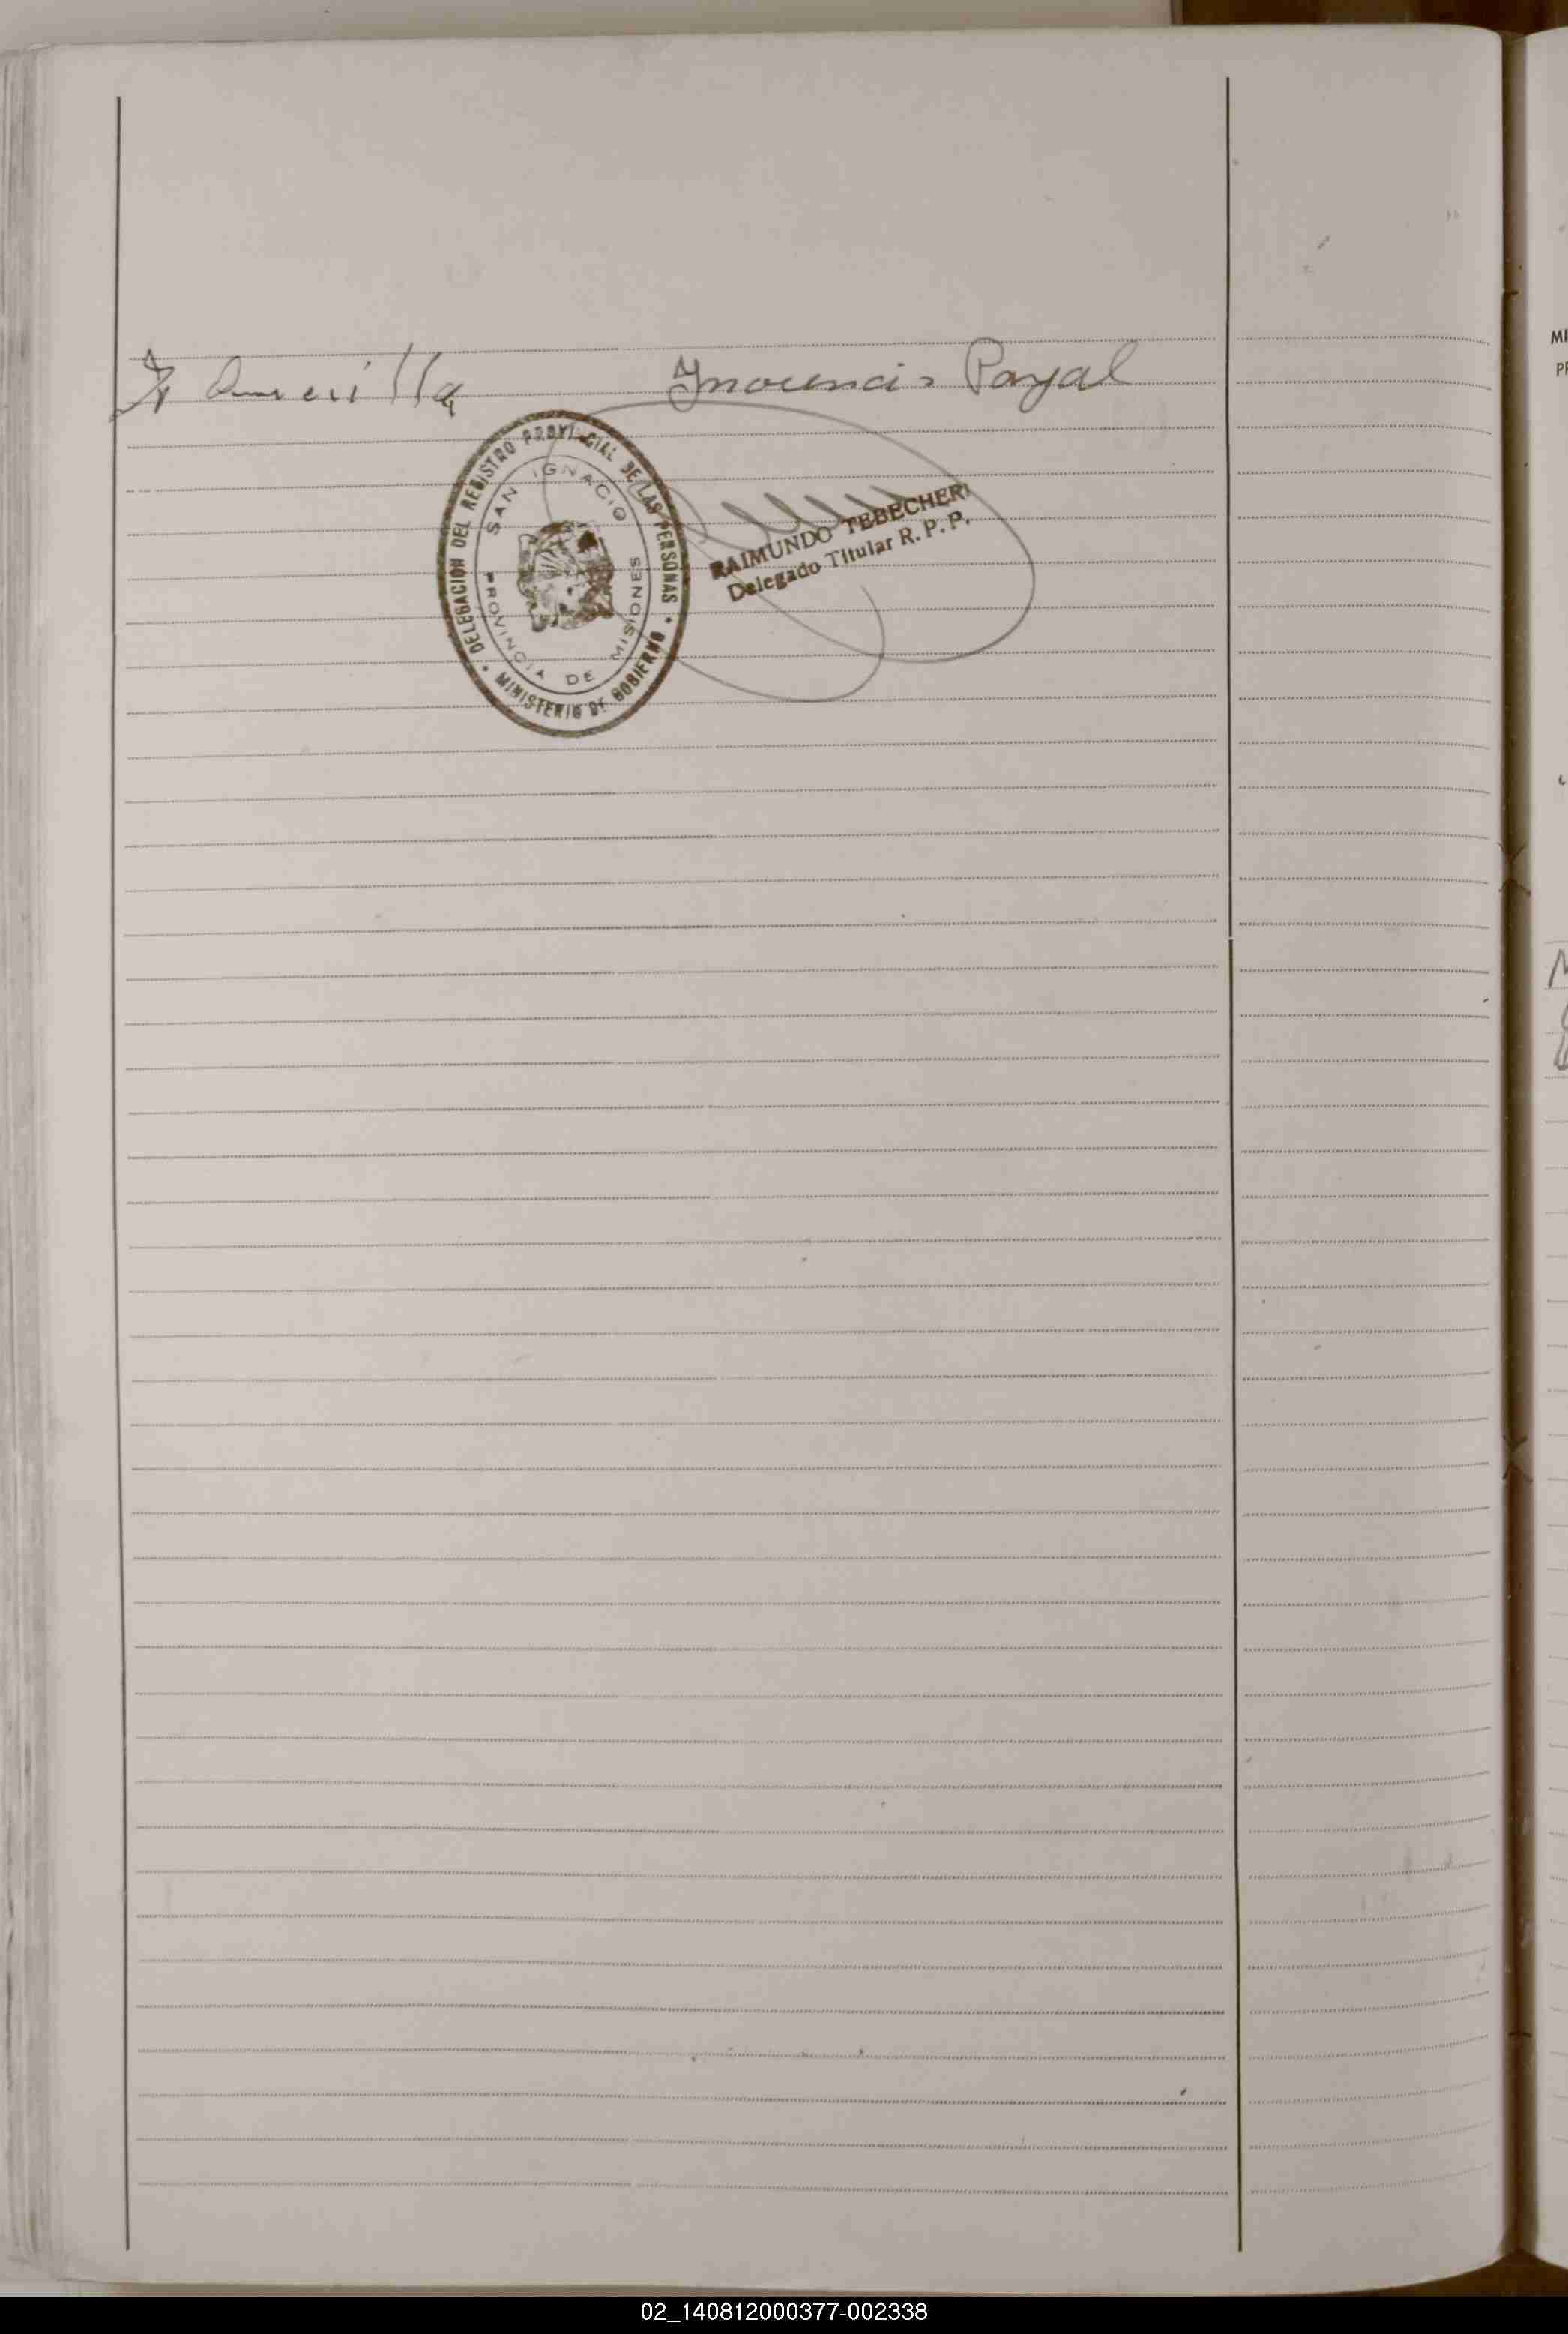 Inocencia Payal
DELEGACION DEL REGISTRO PROVINCIAL DE LAS PERSONAS
SAN IGNACIO
PROVINCIA DE MISIONES
MINISTERIO DE GOBIERNO
RAIMUNDO TEBECHERI
Delegado Titular R. P. P.
MI
02_140812000377-002338